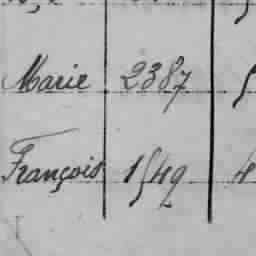 Marie 2387 5
François 1542 4